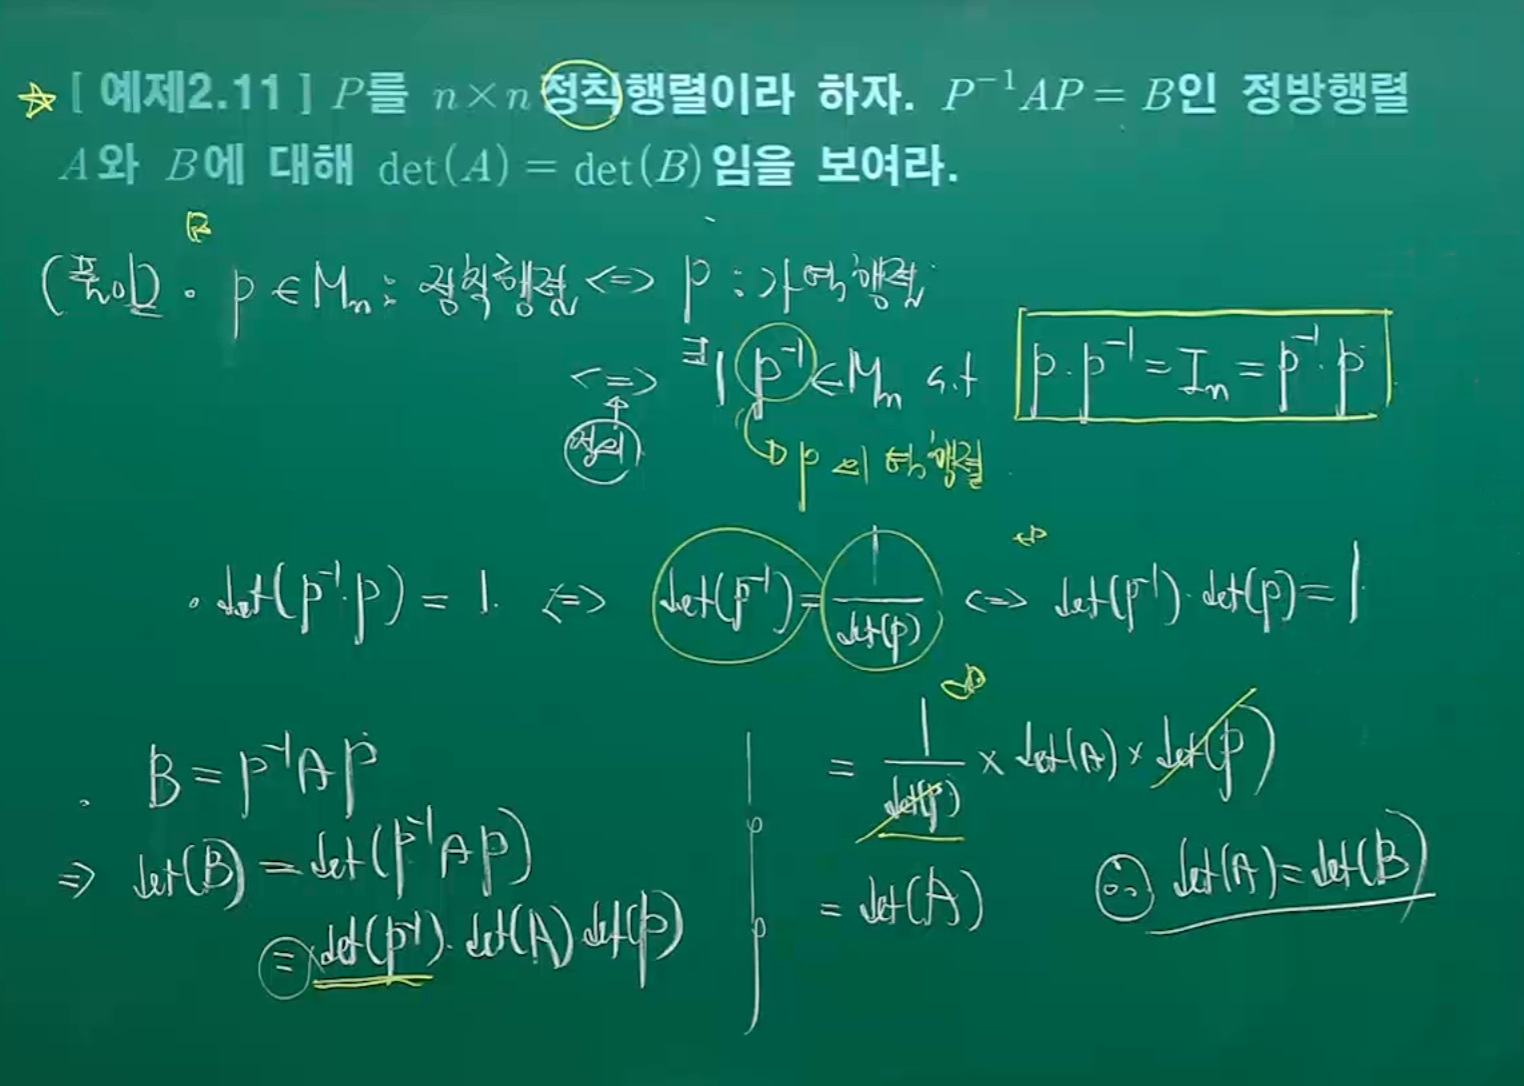 [ 예제2.11 ] P를 n×n 정칙행렬이라 하자. P⁻¹AP = B인 정방행렬
A와 B에 대해 det(A) = det(B)임을 보여라.
(풀이) · P ∈ Mₙ : 정칙행렬 <=> P : 가역행렬
<=> ∃1 P⁻¹ ∈ Mₙ s.t P·P⁻¹ = Iₙ = P⁻¹·P
정의
P의 역행렬
· det(P⁻¹·P) = 1. <=> det(P⁻¹) = 1/det(P) <=> det(P⁻¹)·det(P) = 1
· B = P⁻¹AP
=> det(B) = det(P⁻¹AP)
= det(P⁻¹)·det(A) det(P)
= 1/det(P) × det(A) × det(P)
= det(A)
∴ det(A) = det(B)